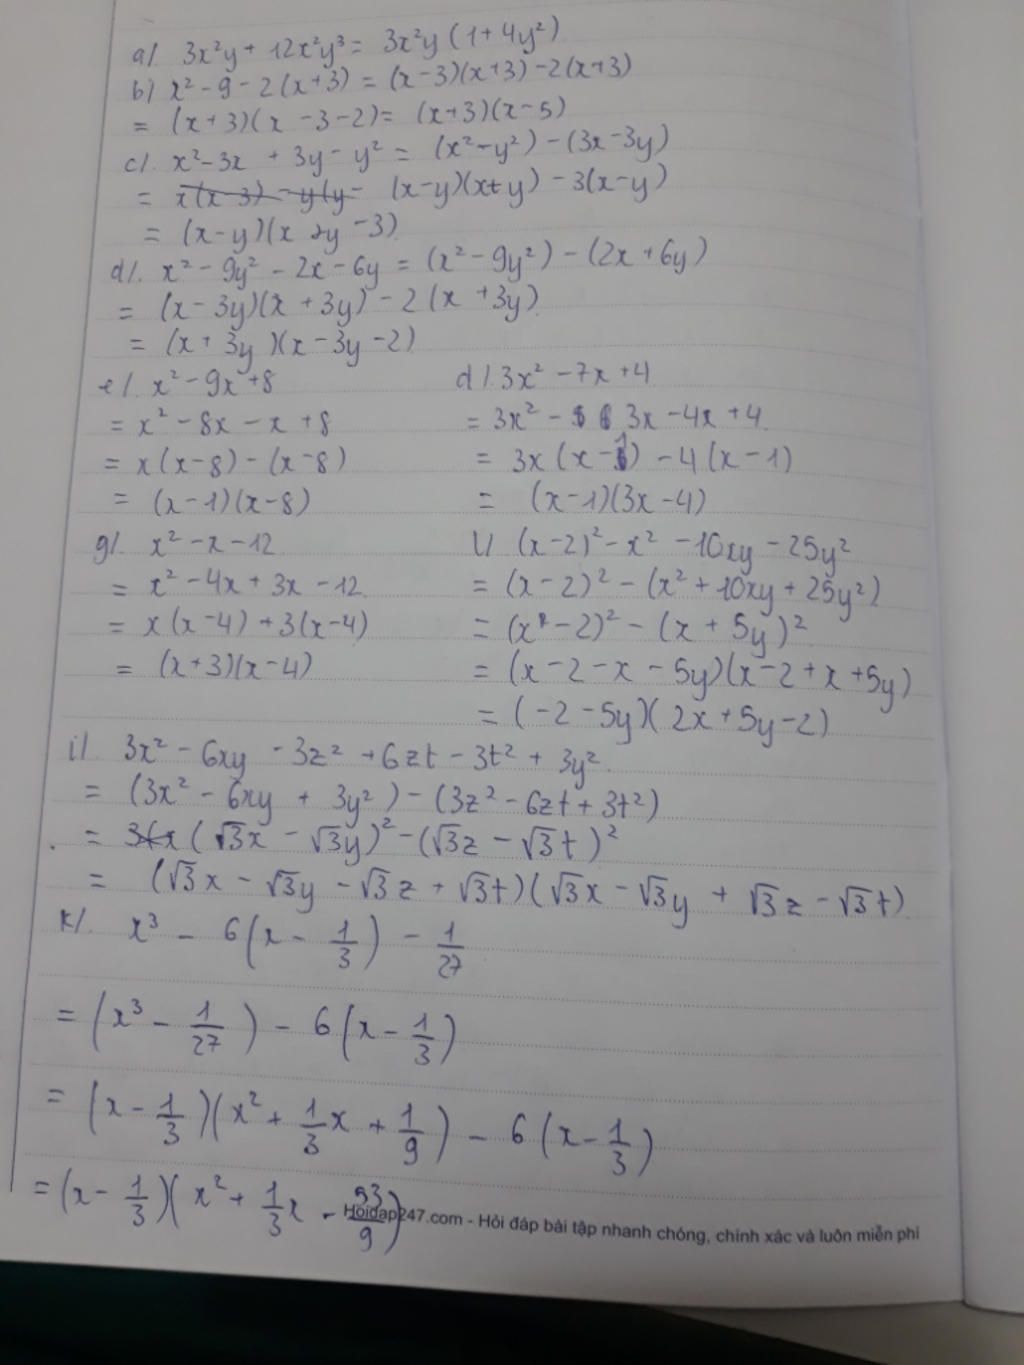 a/. 3x²y + 12x²y³ = 3x²y (1 + 4y²)
b) x² - 9 - 2(x+3) = (x-3)(x+3) - 2(x+3)
= (x+3)(x - 3 - 2) = (x+3)(x-5)
c/. x² - 3x + 3y - y² = (x² - y²) - (3x - 3y)
= x(x-3) - y(y- (x-y)(x+y) - 3(x-y)
= (x-y)(x+y-3)
d/. x² - 9y² - 2x - 6y = (x² - 9y²) - (2x + 6y)
= (x - 3y)(x + 3y) - 2(x + 3y)
= (x + 3y)(x - 3y - 2)
e/. x² - 9x + 8
= x² - 8x - x + 8
= x(x-8) - (x-8)
= (x-1)(x-8)
d/. 3x² - 7x + 4
= 3x² - 3x - 4x + 4
= 3x(x-1) - 4(x-1)
= (x-1)(3x-4)
g/. x² - x - 12
= x² - 4x + 3x - 12
= x(x-4) + 3(x-4)
= (x+3)(x-4)
l/ (x-2)² - x² - 10xy - 25y²
= (x-2)² - (x² + 10xy + 25y²)
= (x-2)² - (x + 5y)²
= (x - 2 - x - 5y)(x - 2 + x + 5y)
= (-2 - 5y)(2x + 5y - 2)
i/. 3x² - 6xy - 3z² + 6zt - 3t² + 3y²
= (3x² - 6xy + 3y²) - (3z² - 6zt + 3t²)
= (√3x - √3y)² - (√3z - √3t)²
= (√3x - √3y - √3z + √3t)(√3x - √3y + √3z - √3t)
k/. x³ - 6(x - 1/3) - 1/27
= (x³ - 1/27) - 6(x - 1/3)
= (x - 1/3)(x² + 1/3x + 1/9) - 6(x - 1/3)
= (x - 1/3)(x² + 1/3x - 53/9)
Hoidap247.com - Hỏi đáp bài tập nhanh chóng, chính xác và luôn miễn phí